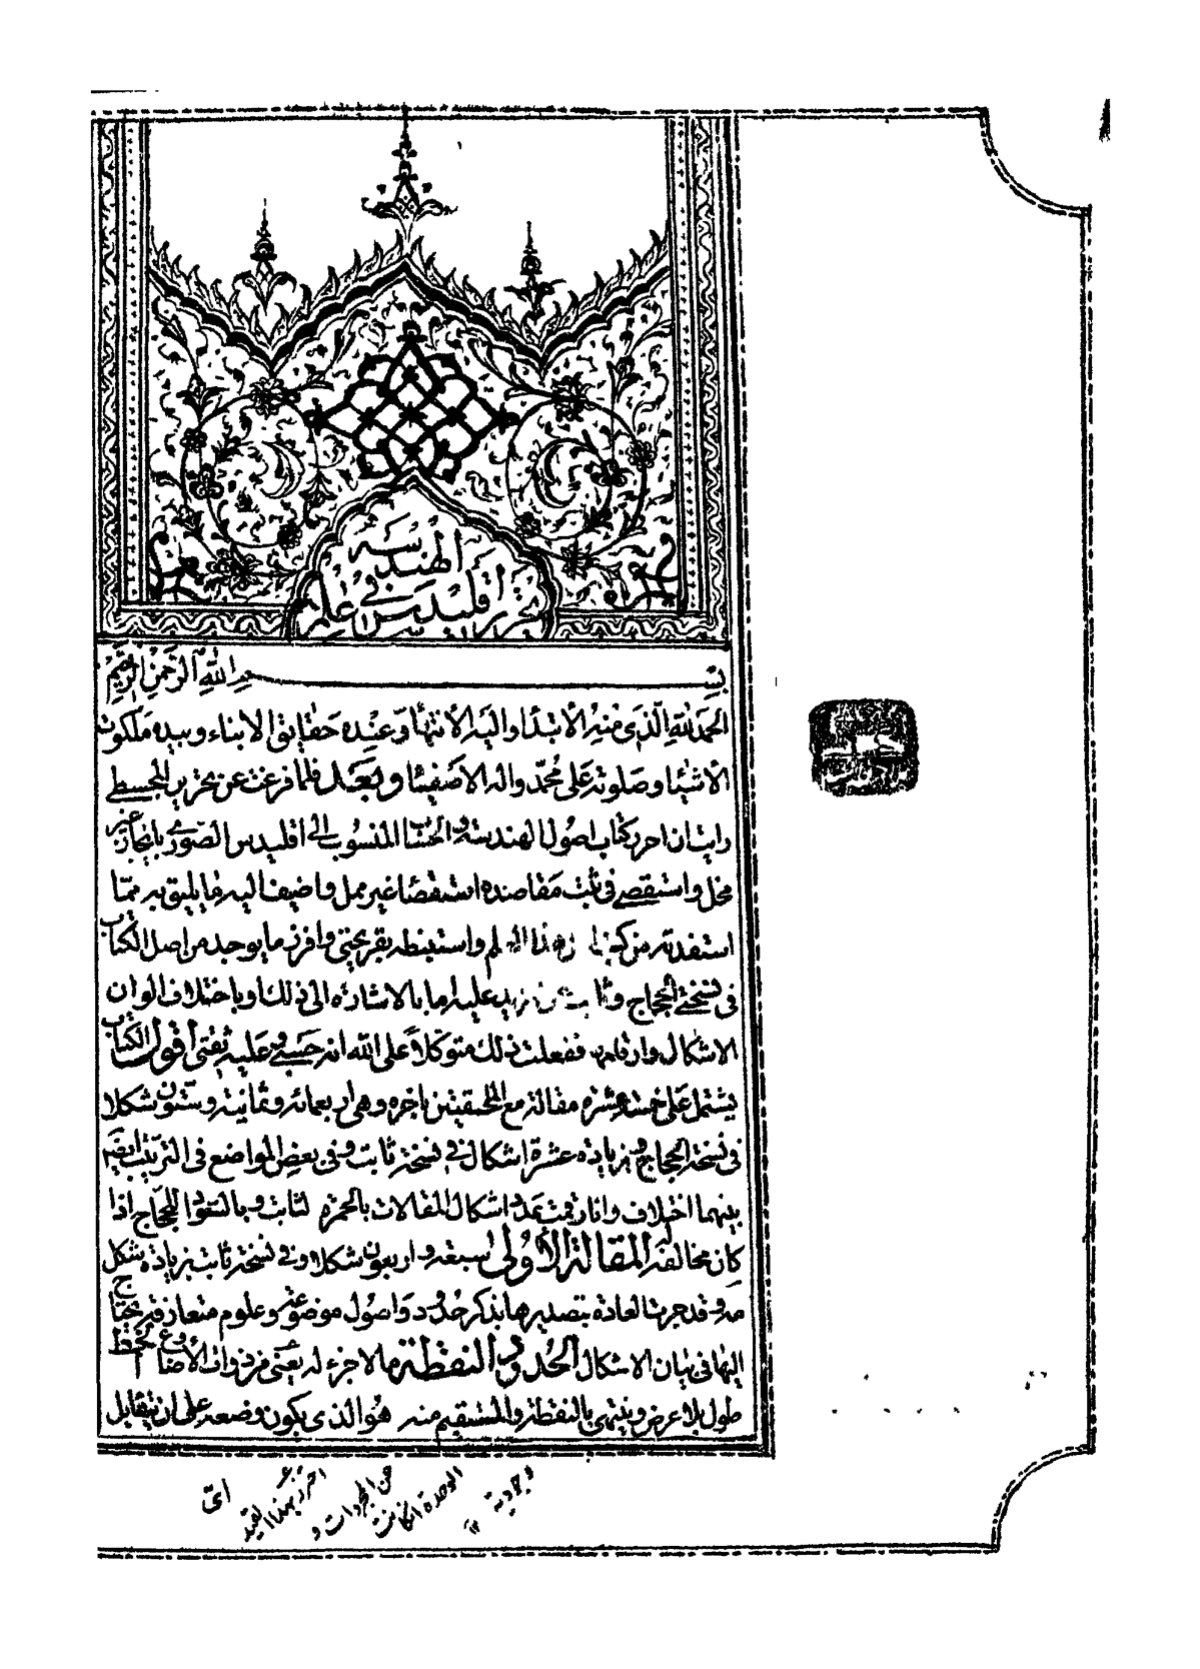 الهندسه
اقليدس في علم
بسم الله الرحمن الرحيم
الحمد لله الذي منه الابتدا واليه الانتها وعنده حقايق الانباء وبيده ملكوت
الاشيا وصلوته على محمد واله الاصفيا وبعد فلما فرغت عن تحرير المجسطي
رايت ان احرر كتاب اصول الهندسة والحساب المنسوب الى اقليدس الصوري بايجاز غير
مخل واستقصي في ثبت مقاصده استقصا غير ممل واضيف اليه ما يليق به مما
استفدته من كتب هذا العلم واستنبطه بقريحتي وافرز ما يوجد من اصل الكتاب
في نسختي الحجاج وثابت عن المزيد عليه اما بالاشارة الى ذلك او باختلاف الوان
الاشكال وارقامها ففعلت ذلك متوكلا على الله انه حسبي وعليه ثقتي اقول الكتاب
يشتمل على خمسة عشرة مقالة مع الملحقتين باخره وهي اربعمائه وثمانية وستون شكلا
في نسخة الحجاج وبزيادة عشرة اشكال في نسخة ثابت وفي بعض المواضع في الترتيب ايضا
بينهما اختلاف وانا رقمت عدد اشكال المقالات بالحمرة لثابت وبالسواد للحجاج اذا
كان مخالفه المقالة الاولى سبعة واربعون شكلا وفي نسخة ثابت بزيادة شكل
مه وقد جرت العادة بتصديرها بذكر حدود واصول موضوعة وعلوم متعارفة يحتاج
اليها في بيان الاشكال الحدود النقطة ما لا جزء له يعني من ذوات الاوضاع الخط
طول بلا عرض وينتهي بالنقطة والمستقيم منه هو الذي يكون وضعه على ان يتقابل
اي
احترز بهذا القيد
عن المجردات و
الوحدة